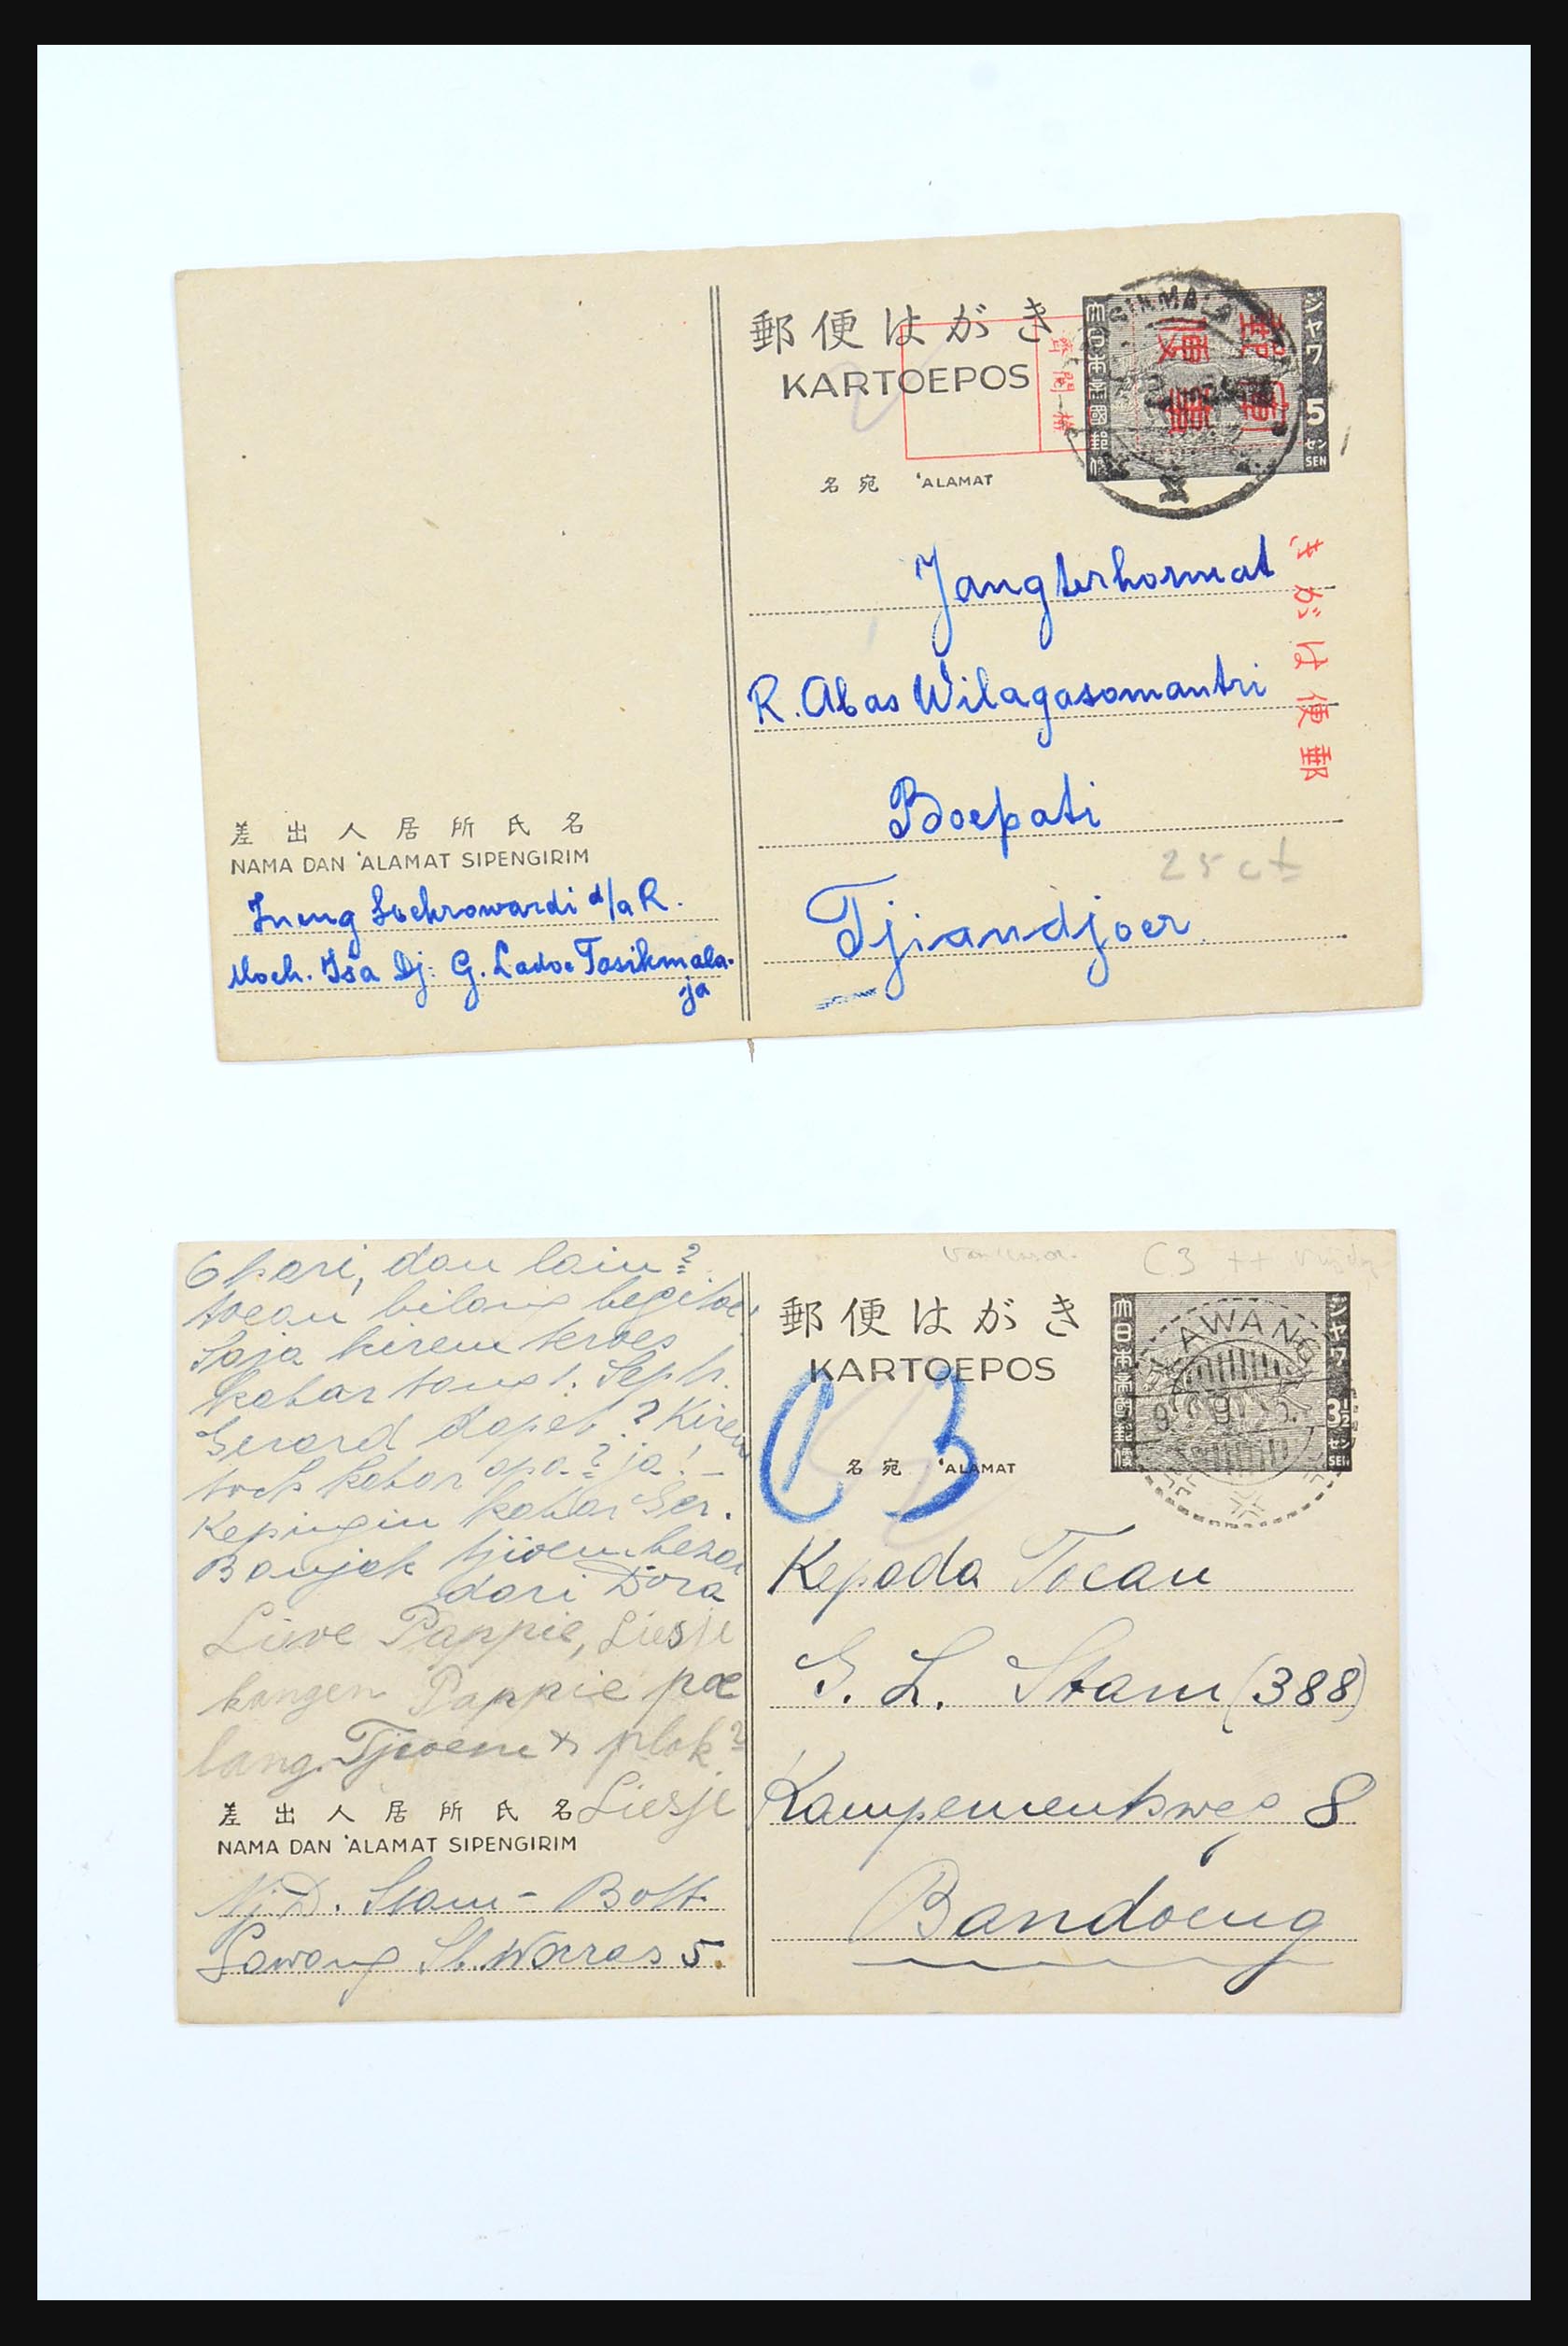 郵便はがき
KARTOEPOS
大日本帝國郵便
ジャワ
5
セン
SEN
軍事
郵便
検閲
名宛 'ALAMAT
Jang terhormat
R. Abas Wilagasomantri
Boepati
Tjiandjoer
25 ct
きがは便郵
差出人居所氏名
NAMA DAN 'ALAMAT SIPENGIRIM
Ineng Soekrowardi d/a R.
Moch. Isa Dj. G. Ladoe Tasikmala-
ja
6 hari, dan lain?
toean bilang begitoe
Saja kirem teroes
kabar tangl. Sept.
Gerard dapet? Kirem
toch kabar apa? ja! –
Kepingin kabar Ger.
Banjak tjioem besar
dari Dora
Lieve Pappie, Liesje
kangen Pappie poe
lang. Tjioem × plok?
Liesje
差出人居所氏名
NAMA DAN 'ALAMAT SIPENGIRIM
Nj. D. Stam – Bolt
Lawang St. Wxras 5.
C3 ++
郵便はがき
KARTOEPOS
大日本帝國郵便
ジャワ
3½
セン
SEN
LAWANG
C 3
名宛 'ALAMAT
Kepada Toean
G. L. Stam (388)
Kampementsweg 8
Bandoeng